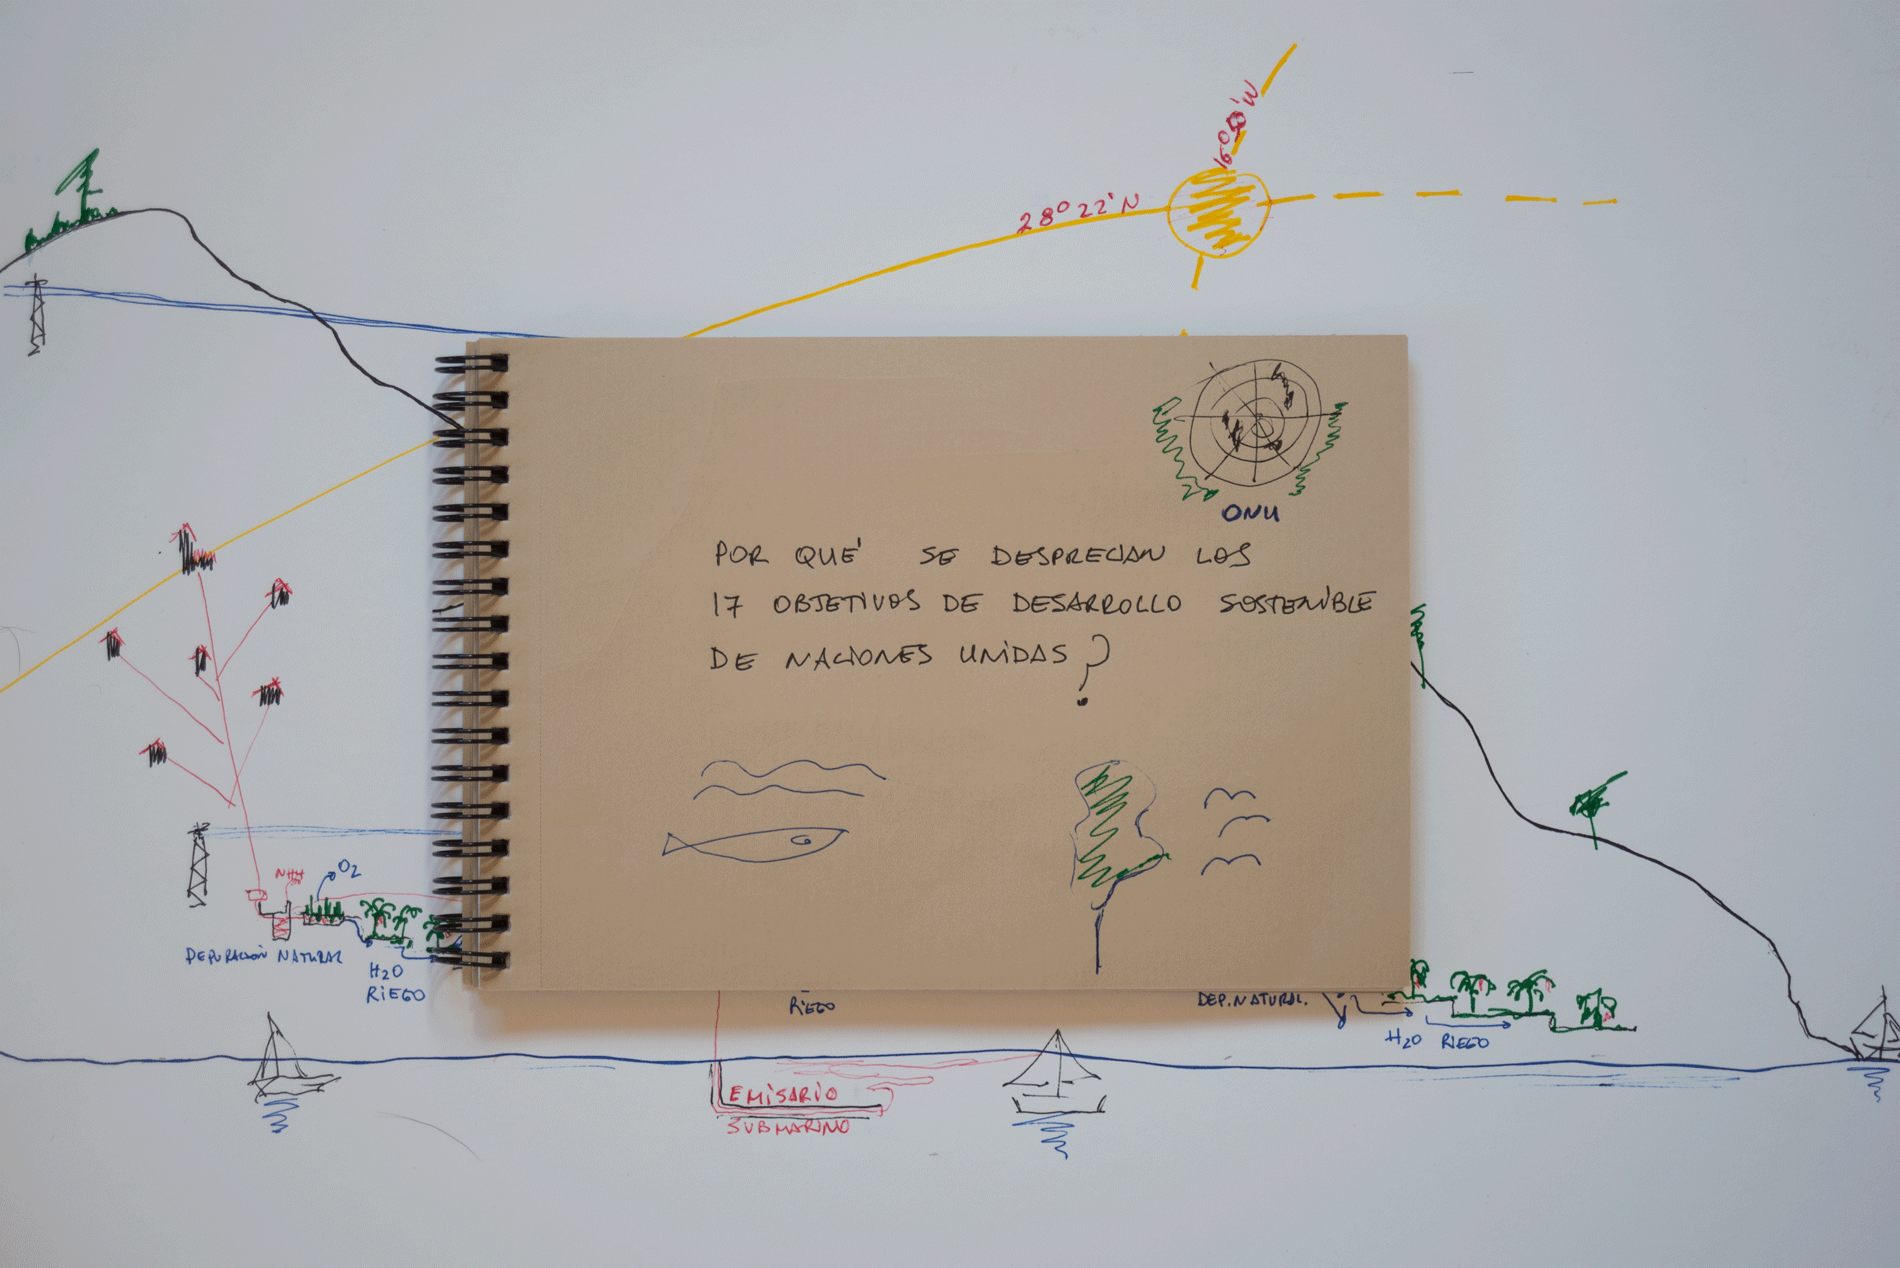 28º 22' N
ONU
POR QUÉ SE DESPRECIAN LOS
17 OBJETIVOS DE DESARROLLO SOSTENIBLE
DE NACIONES UNIDAS?
O2
DEPURACIÓN NATURAL
H2O
RIEGO
RIEGO
DEP. NATURAL.
H2O RIEGO
EMISARIO
SUBMARINO